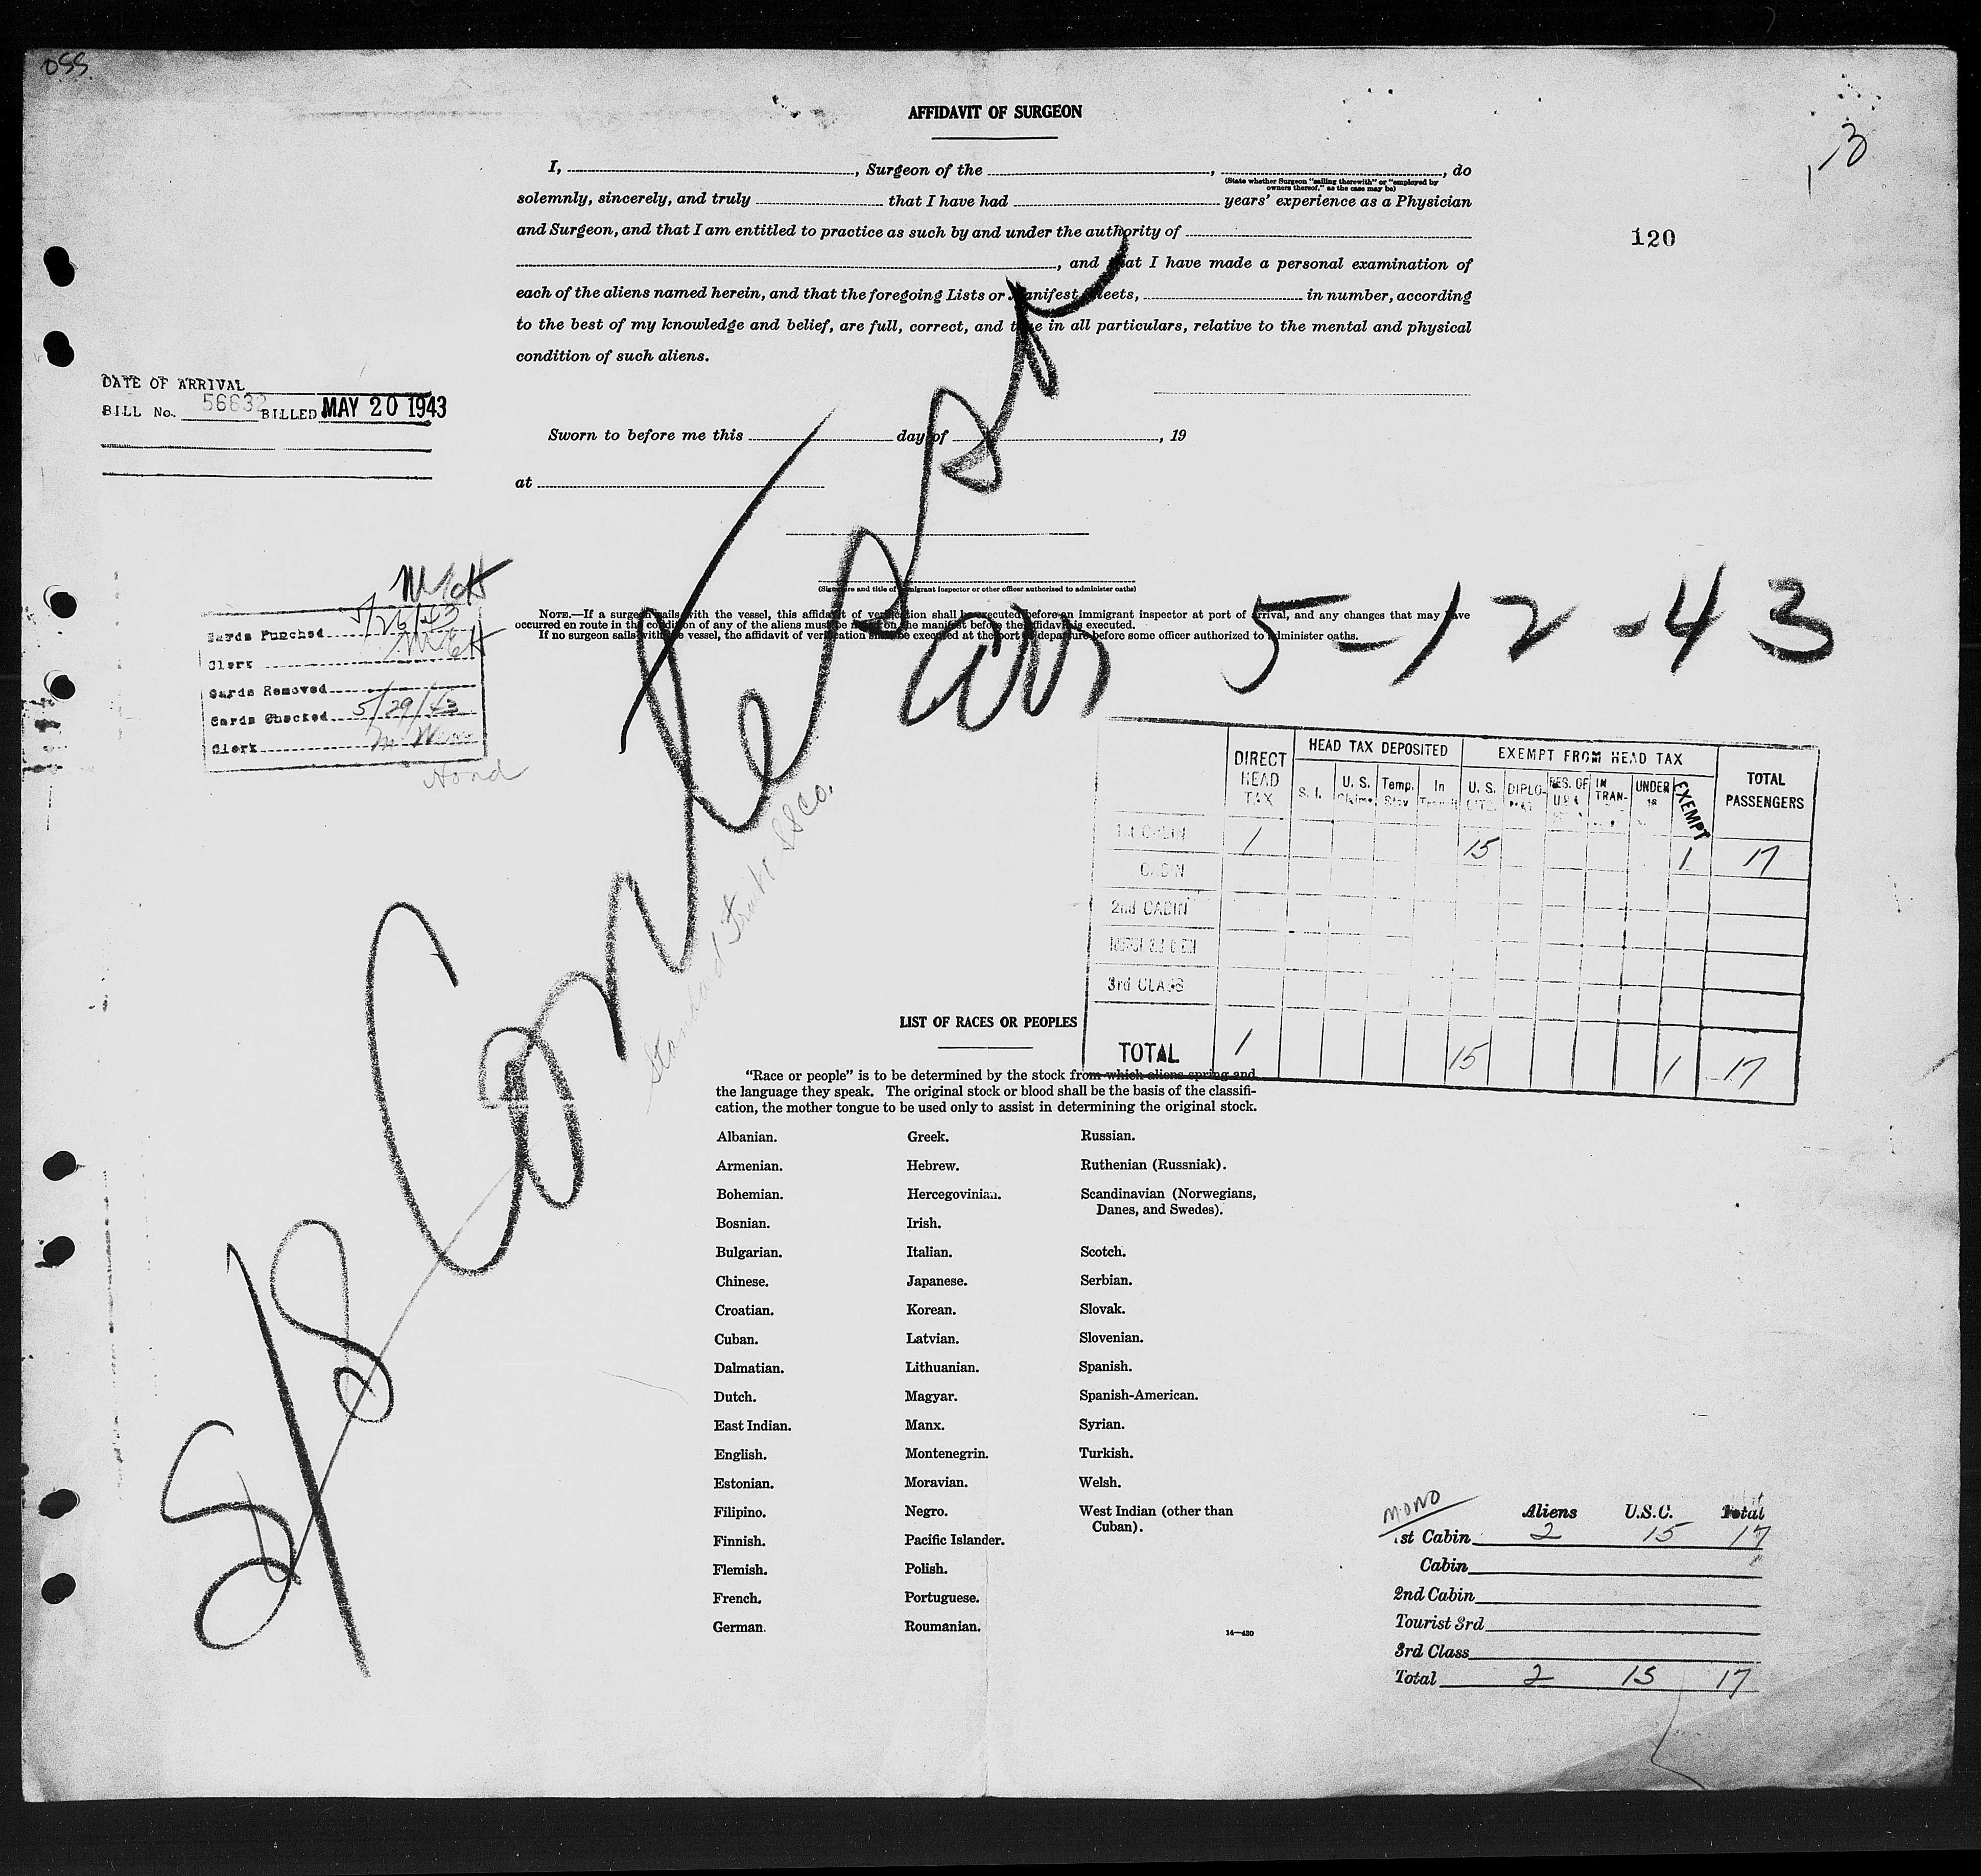 OSS.
13
AFFIDAVIT OF SURGEON
I, , Surgeon of the , , do
(State whether Surgeon "sailing therewith" or "employed by
owners thereof," as the case may be)
solemnly, sincerely, and truly that I have had years' experience as a Physician
and Surgeon, and that I am entitled to practice as such by and under the authority of
120
, and that I have made a personal examination of
each of the aliens named herein, and that the foregoing Lists or Manifest Sheets, in number, according
to the best of my knowledge and belief, are full, correct, and true in all particulars, relative to the mental and physical
condition of such aliens.
DATE OF ARRIVAL
BILL No. 56632 BILLED MAY 20 1943
Sworn to before me this day of , 19
at
(Signature and title of immigrant inspector or other officer authorized to administer oaths)
NOTE.—If a surgeon sails with the vessel, this affidavit of verification shall be executed before an immigrant inspector at port of arrival, and any changes that may have
occurred en route in the condition of any of the aliens must be noted on the manifest before the affidavit is executed.
If no surgeon sails with the vessel, the affidavit of verification shall be executed at the port of departure before some officer authorized to administer oaths.
Cards Punched 5/26/43
Clerk
Cards Removed
Cards Checked 5/29/43
Clerk
S/S Contessa
arr 5-12-43
Standard Fruit SS Co.
DIRECT HEAD TAX
HEAD TAX DEPOSITED
EXEMPT FROM HEAD TAX
TOTAL PASSENGERS
S. I. U. S. Claims Temp. Stay In Transit U. S. CITZ. DIPLOMAT RES. OF U.S.A. IN TRAN- UNDER 16 EXEMPT
1st CABIN 1 15 1 17
CABIN
2nd CABIN
3rd CLASS
TOTAL 1 15 1 17
LIST OF RACES OR PEOPLES
"Race or people" is to be determined by the stock from which aliens spring and
the language they speak. The original stock or blood shall be the basis of the classifi-
cation, the mother tongue to be used only to assist in determining the original stock.
Albanian. Greek. Russian.
Armenian. Hebrew. Ruthenian (Russniak).
Bohemian. Hercegovinian. Scandinavian (Norwegians,
Danes, and Swedes).
Bosnian. Irish.
Bulgarian. Italian. Scotch.
Chinese. Japanese. Serbian.
Croatian. Korean. Slovak.
Cuban. Latvian. Slovenian.
Dalmatian. Lithuanian. Spanish.
Dutch. Magyar. Spanish-American.
East Indian. Manx. Syrian.
English. Montenegrin. Turkish.
Estonian. Moravian. Welsh.
Filipino. Negro. West Indian (other than
Cuban).
Finnish. Pacific Islander.
Flemish. Polish.
French. Portuguese.
German. Roumanian.
14—430
MONO
Aliens U.S.C. Total
1st Cabin 2 15 17
Cabin
2nd Cabin
Tourist 3rd
3rd Class
Total 2 15 17